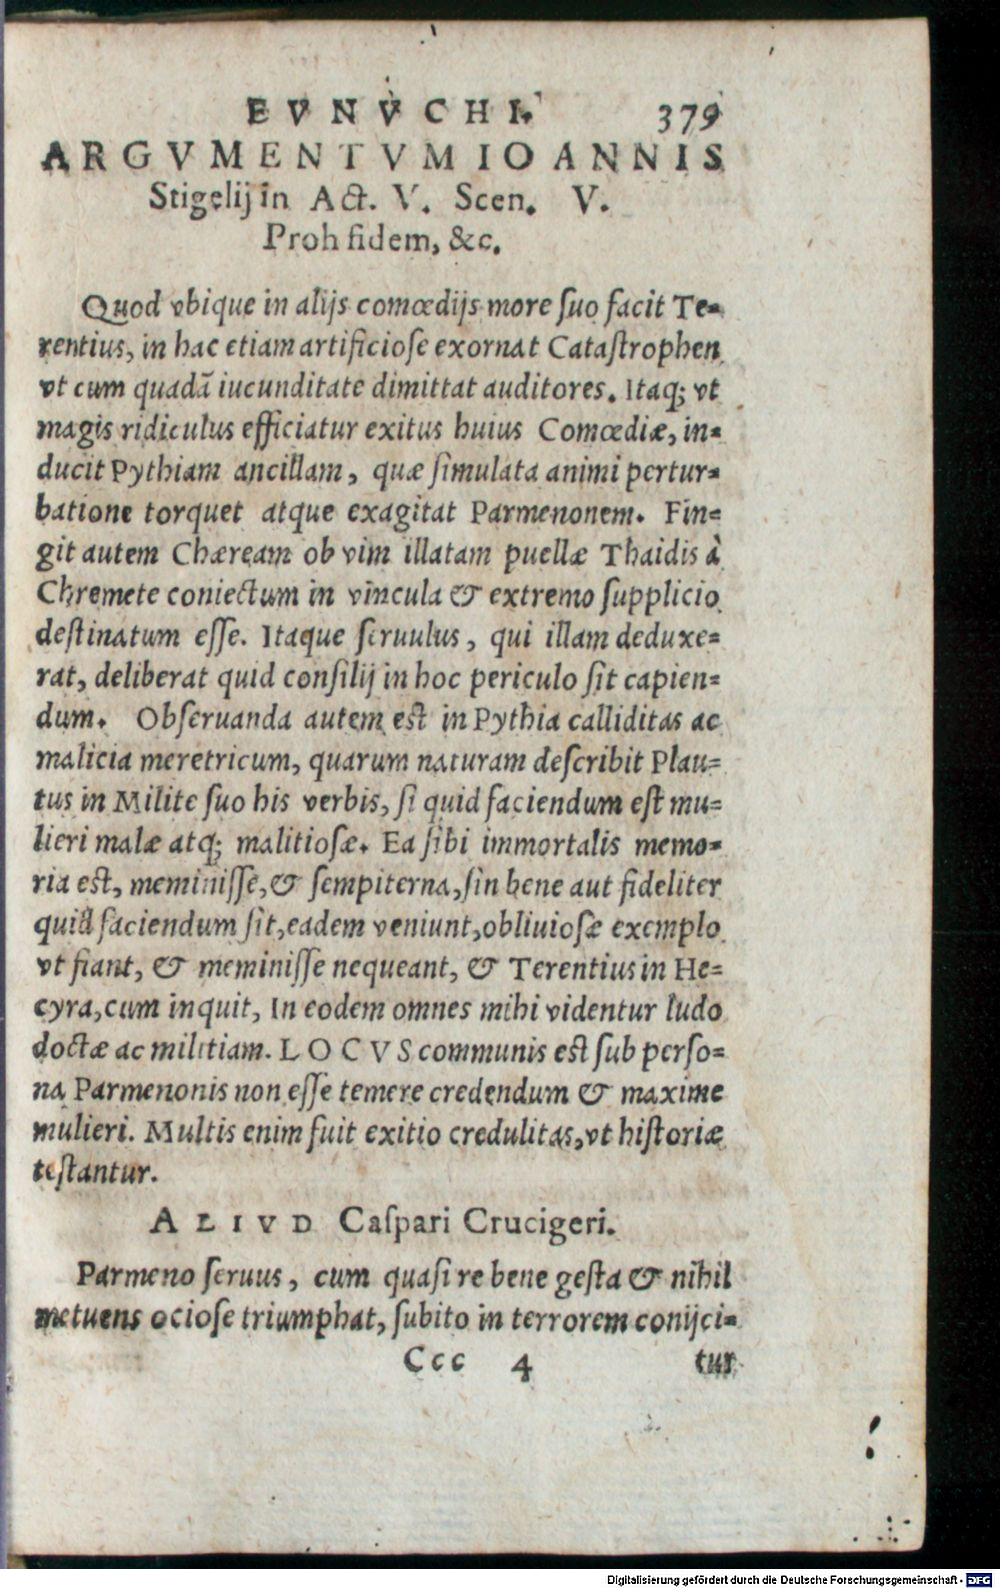 EVNVCHI. 379
ARGVMENTVM IOANNIS
Stigelij in Act. V. Scen. V.
Proh fidem, &c.
Quod vbique in alijs comœdijs more ſuo facit Te-
rentius, in hac etiam artificioſe exornat Cataſtrophen
vt cum quadã iucunditate dimittat auditores. Itaq; vt
magis ridiculus efficiatur exitus huius Comœdiæ, in-
ducit Pythiam ancillam, quæ ſimulata animi pertur-
batione torquet atque exagitat Parmenonem. Fin-
git autem Chæream ob vim illatam puellæ Thaidis à
Chremete coniectum in vincula & extremo ſupplicio
deſtinatum eſſe. Itaque ſeruulus, qui illam deduxe-
rat, deliberat quid conſilij in hoc periculo ſit capien-
dum. Obſeruanda autem est in Pythia calliditas ac
malicia meretricum, quarum naturam deſcribit Plau-
tus in Milite ſuo his verbis, ſi quid faciendum eſt mu-
lieri malæ atq; malitioſæ. Ea ſibi immortalis memo-
ria eſt, meminiſſe, & ſempiterna, ſin bene aut fideliter
quid faciendum ſit, eadem veniunt, obliuioſæ exemplo
vt fiant, & meminiſſe nequeant, & Terentius in He-
cyra, cum inquit, In eodem omnes mihi videntur ludo
doctæ ac militiam. LOCVS communis eſt ſub perſo-
na Parmenonis non eſſe temere credendum & maxime
mulieri. Multis enim fuit exitio credulitas, vt hiſtoriæ
teſtantur.
ALIVD Caſpari Crucigeri.
Parmeno ſeruus, cum quaſi re bene geſta & nihil
metuens ocioſe triumphat, ſubito in terrorem conijci-
Ccc 4 tur
Digitalisierung gefördert durch die Deutsche Forschungsgemeinschaft - DFG